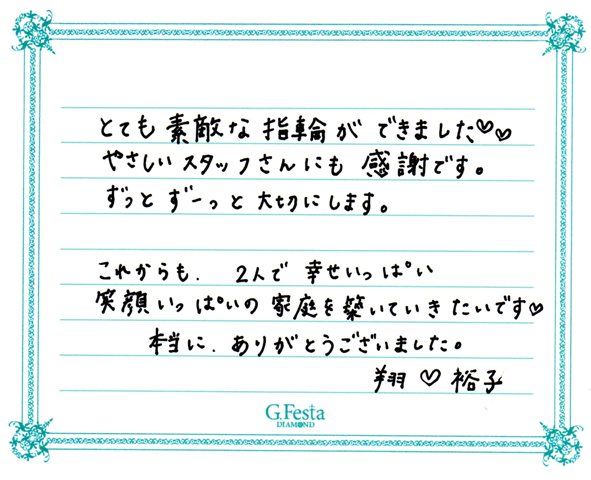 とても素敵な指輪ができました♡♡
やさしいスタッフさんにも感謝です。
ずっとずーっと大切にします。
これからも、2人で幸せいっぱい
笑顔いっぱいの家庭を築いていきたいです♡
本当に、ありがとうございました。
翔♡裕子
G.Festa
DIAMOND